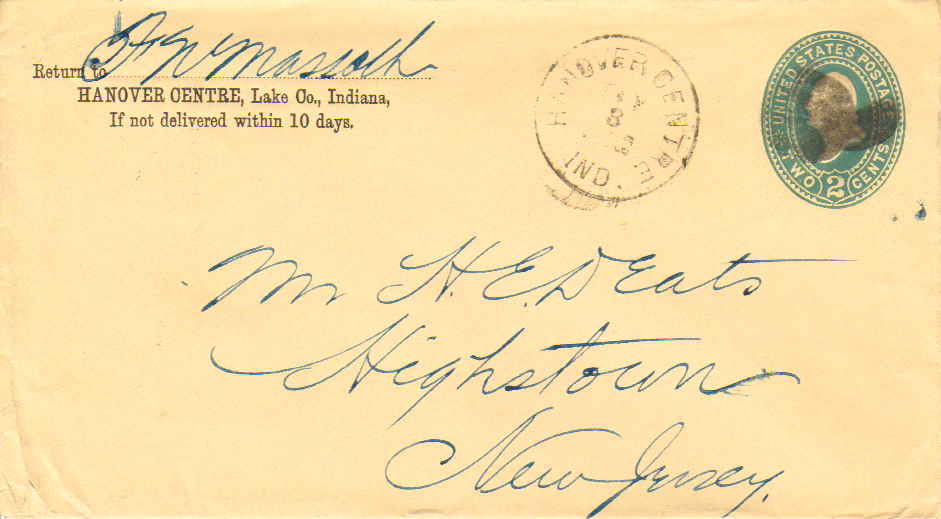 Return to H W Massoth
HANOVER CENTRE, Lake Co., Indiana,
If not delivered within 10 days.
HANOVER CENTRE
8
IND.
UNITED STATES POSTAGE
TWO 2 CENTS
Mr H. E. DEats
Highstown
New Jersey.